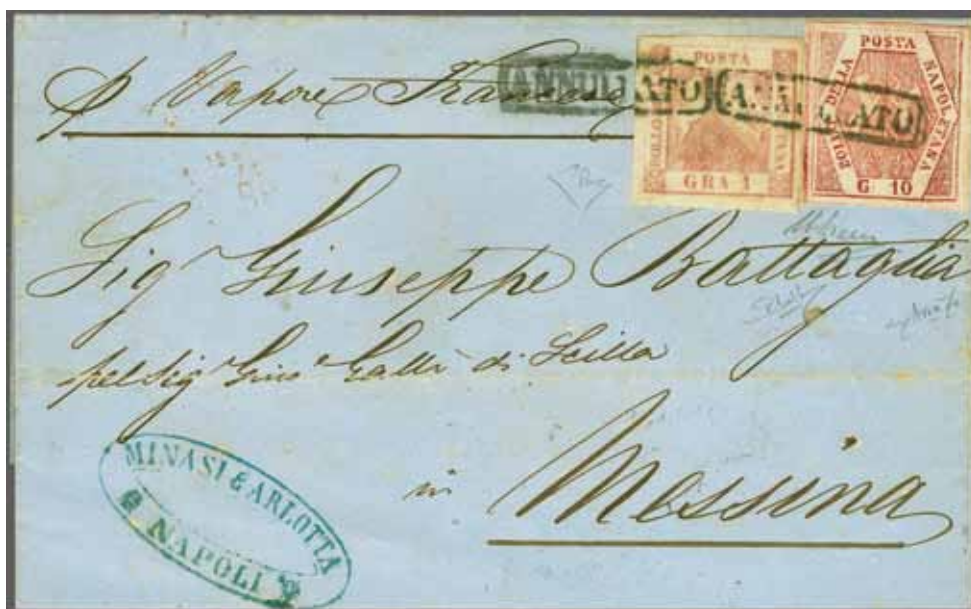 p Vapore Francese
ANNULLATO
ANNULLATO
POSTA
NAPOLETANA
BOLLO
GRA 1
POSTA
NAPOLETANA
BOLLO DELLA
G 10
Sigr Giuseppe Battaglia
pel Sigr Gius Gallà di Scilla
in Messina
MINASI & ARLOTTA
NAPOLI